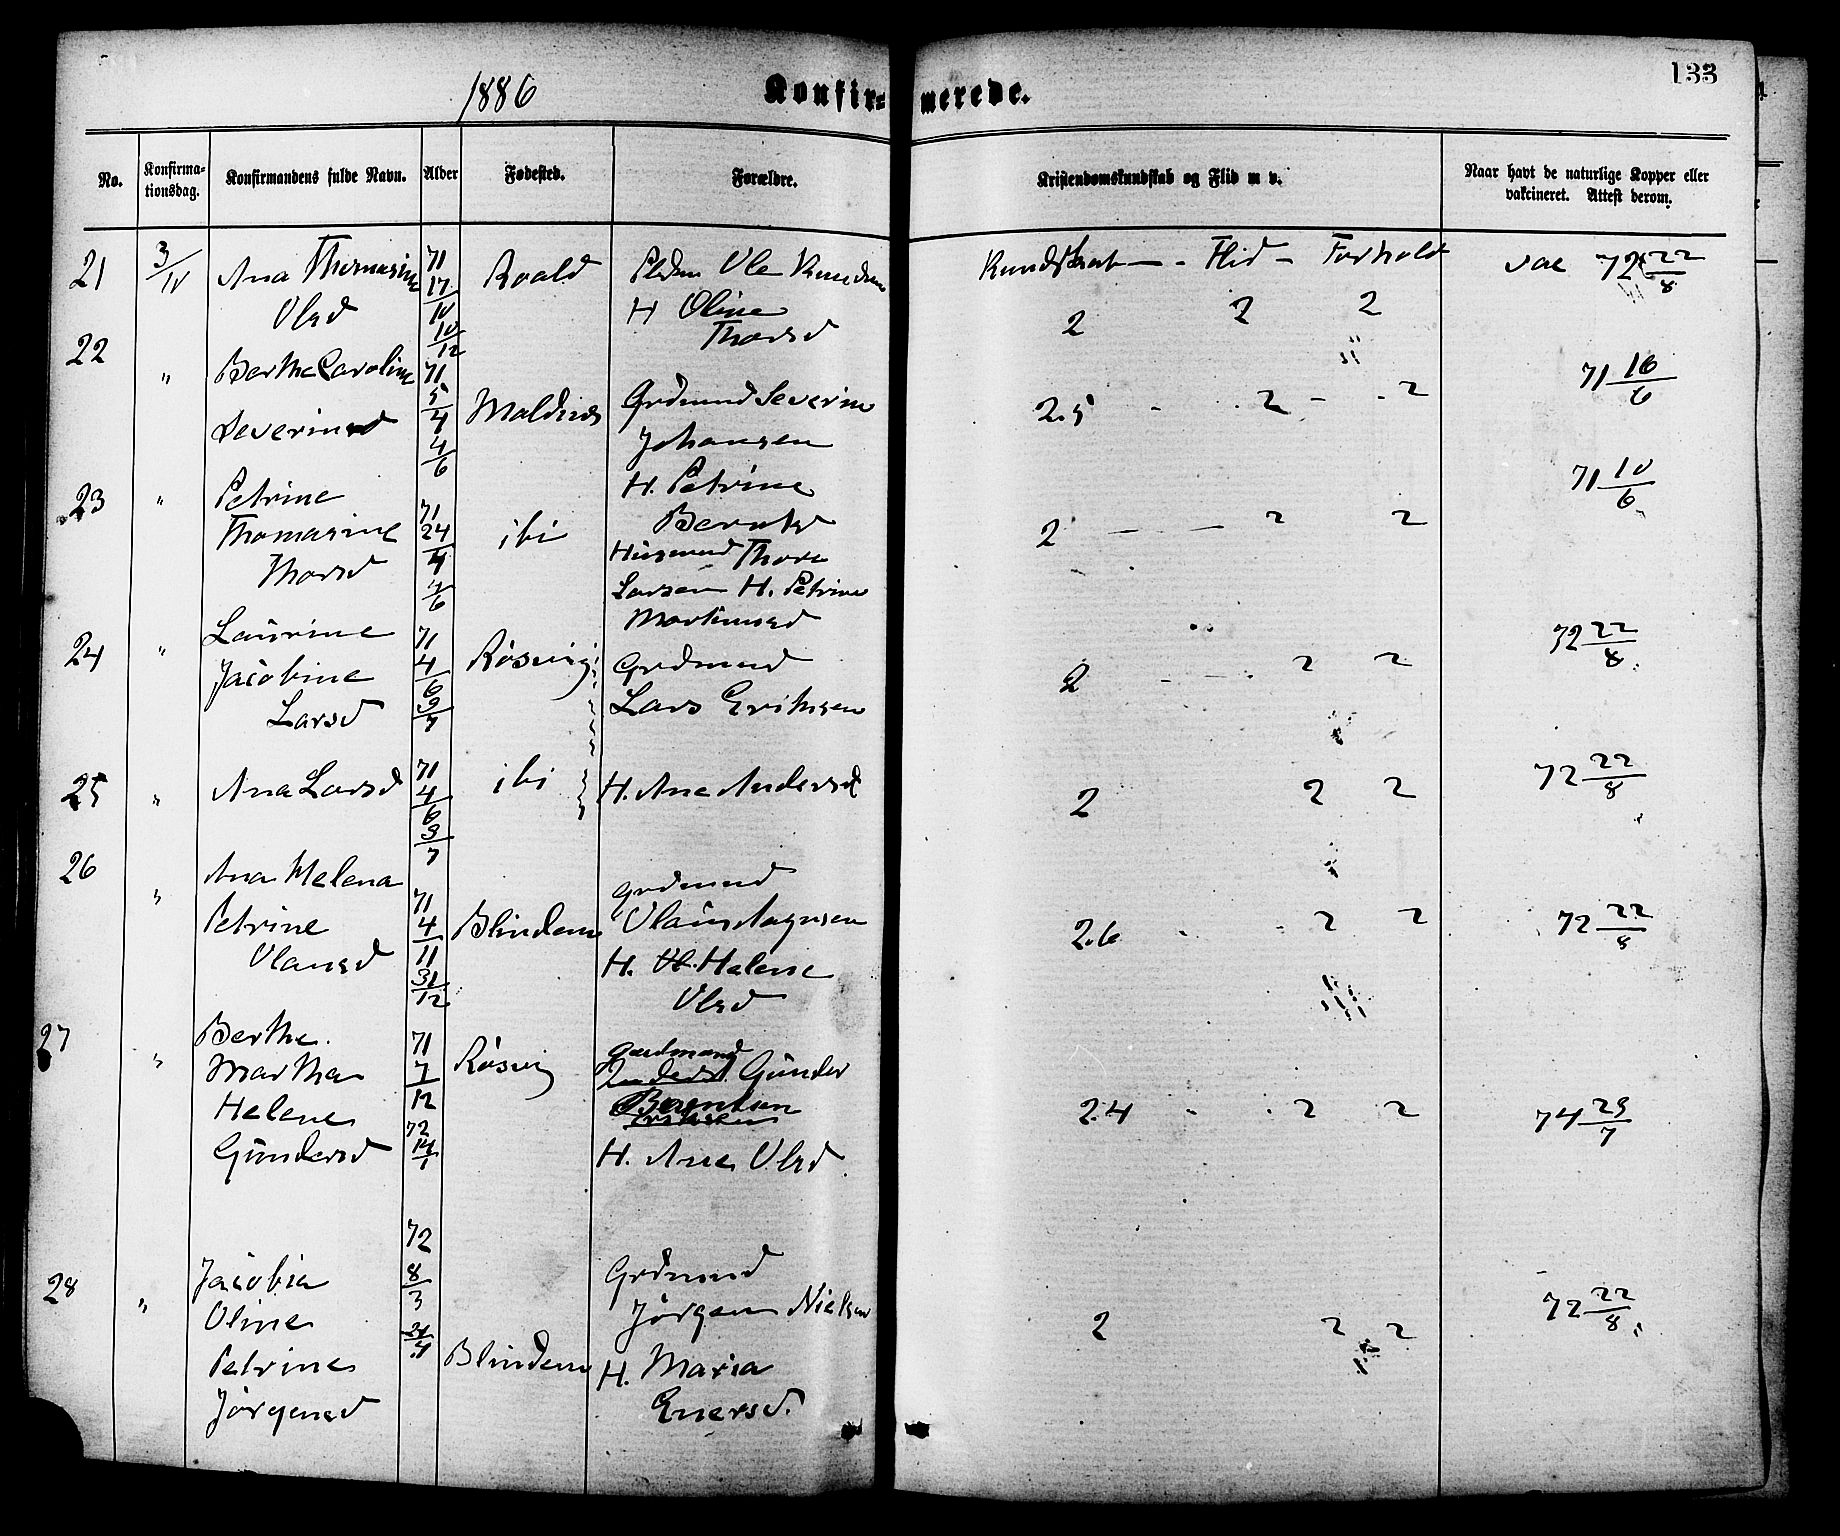 1886
Konfir=
merede.
133
No.
Konfirma-
tionsdag.
Konfirmandens fulde Navn.
Alder
Fødested.
Forældre.
Kristendomskundskab og Flid m v.
Naar havt de naturlige Kopper eller
vakcineret. Attest derom.
21
3/10
Ana Thomasine
Olsd
71
17/10
10/12
Roald
Ole Knudsen
H Oline
Thorsd
Kundskab - Flid - Forhold
2 2 2
vac 72 22/8
22
"
Berthe Caroline
Severinsd
71
5/4
4/6
Moldnes
Grdmand Severin
Johansen
H. Petrine
Berntsd
2.5 - 2 - 2
71 16/6
23
"
Petrine
Thomasine
Thorsd
71
24/4
4/6
ibi
Husmand Thore
Larsen H. Petrine
Martinusd
2 - - 2 2
71 10/6
24
"
Laurine
Jacobine
Larsd
71
4/6
9/7
Røsvig
Grdmand
Lars Eriksen
2 - - 2 2
72 22/8
25
"
Ana Larsd
71
4/6
9/7
ibi
H. Ane Andersd
2 2 2
72 22/8
26
"
Ana Helena
Petrine
Olausd
71
4/11
31/12
Blindem
Grdmand
Olaus Aagesen
H. Helene
Olsd
2.6 - - 2 2
72 22/8
27
"
Berthe
Martha
Helene
Gundersd
71
7/12
72
14/1
Røsvig
Gaardmand
Gunder
Berentsen
H. Ane Olsd
2.4 - - 2 2
74 29/7
28
"
Jacobia
Oline
Petrine
Jørgensd
72
8/3
31/4
Blindem
Grdmand
Jørgen Nielsen
H. Maria
Enersd.
2 2 2
72 22/8